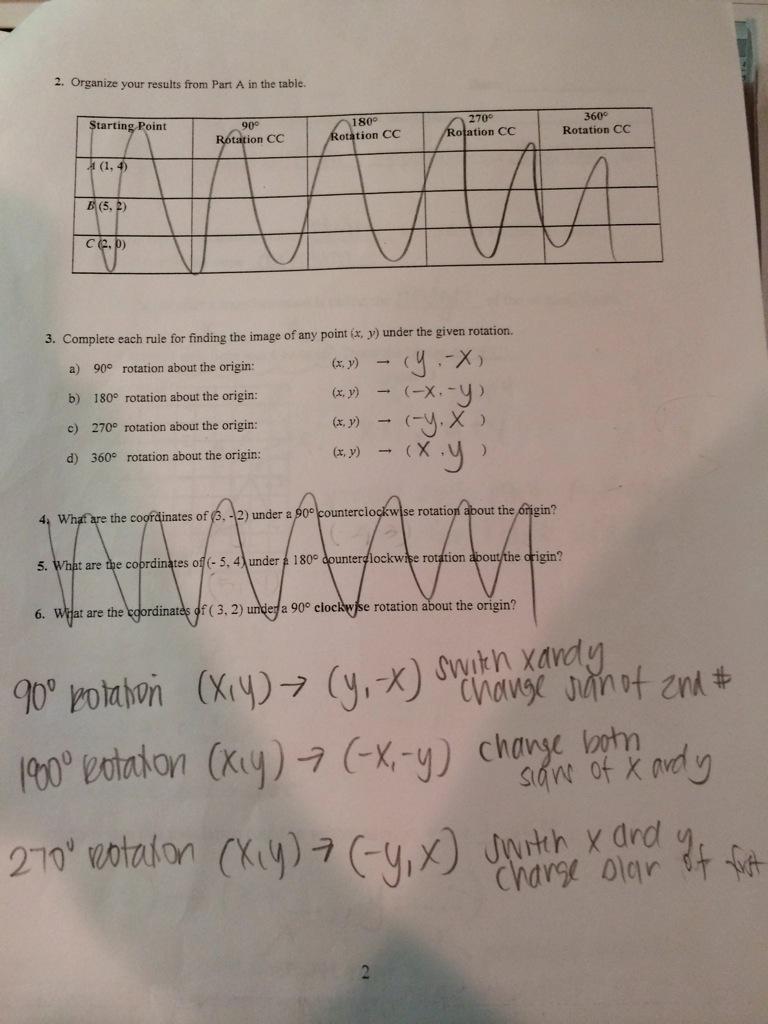 2. Organize your results from Part A in the table.
Starting Point 90° Rotation CC 180° Rotation CC 270° Rotation CC 360° Rotation CC
A (1, 4)
B (5, 2)
C (2, 0)
3. Complete each rule for finding the image of any point (x, y) under the given rotation.
a) 90° rotation about the origin: (x, y) → (y, -x)
b) 180° rotation about the origin: (x, y) → (-x, -y)
c) 270° rotation about the origin: (x, y) → (-y, x)
d) 360° rotation about the origin: (x, y) → (x, y)
4. What are the coordinates of (3, -2) under a 90° counterclockwise rotation about the origin?
5. What are the coordinates of (- 5, 4) under a 180° counterclockwise rotation about the origin?
6. What are the coordinates of ( 3, 2) under a 90° clockwise rotation about the origin?
90° rotation (x,y) → (y,-x) switch x and y
change sign of 2nd #
180° rotation (x,y) → (-x,-y) change both
signs of x and y
270° rotation (x,y) → (-y,x) switch x and y
change sign of first
2